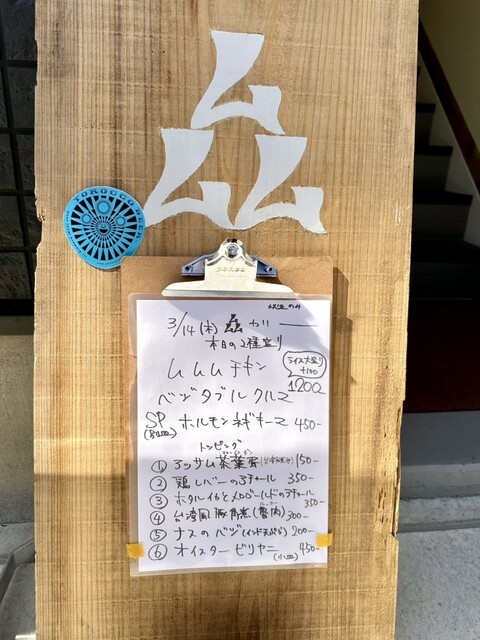 ム
ムム
YOROCCO BEER
3/14(木) ムムム カリー
本日の2種盛り
ムムムチキン
ライス大盛り
+100
1200
ベジタブルクルマ
SP
(別皿)
ホルモンネギキーマ 450-
トッピング
① アッサム茶葉蛋 150-
② 鶏レバーのアチャール 350-
③ ホタルイカとメロゴールドのアチャール 350-
④ 台湾風豚角煮(魯肉) 300-
⑤ ナスのバジ(インド天ぷら) 200-
⑥ オイスタービリヤニ(小皿) 450-